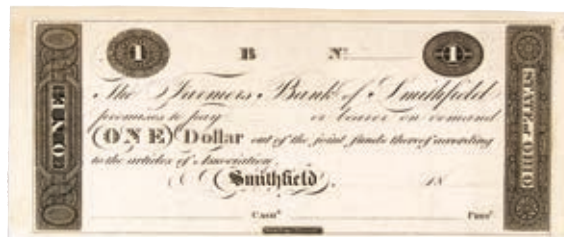 1 B No. 1
The Farmers Bank of Smithfield
promises to pay or bearer on demand
(ONE) Dollar out of the joint funds thereof according
to the articles of Association.
Smithfield, 18
Cashr. Prest.
ONE
STATE of OHIO